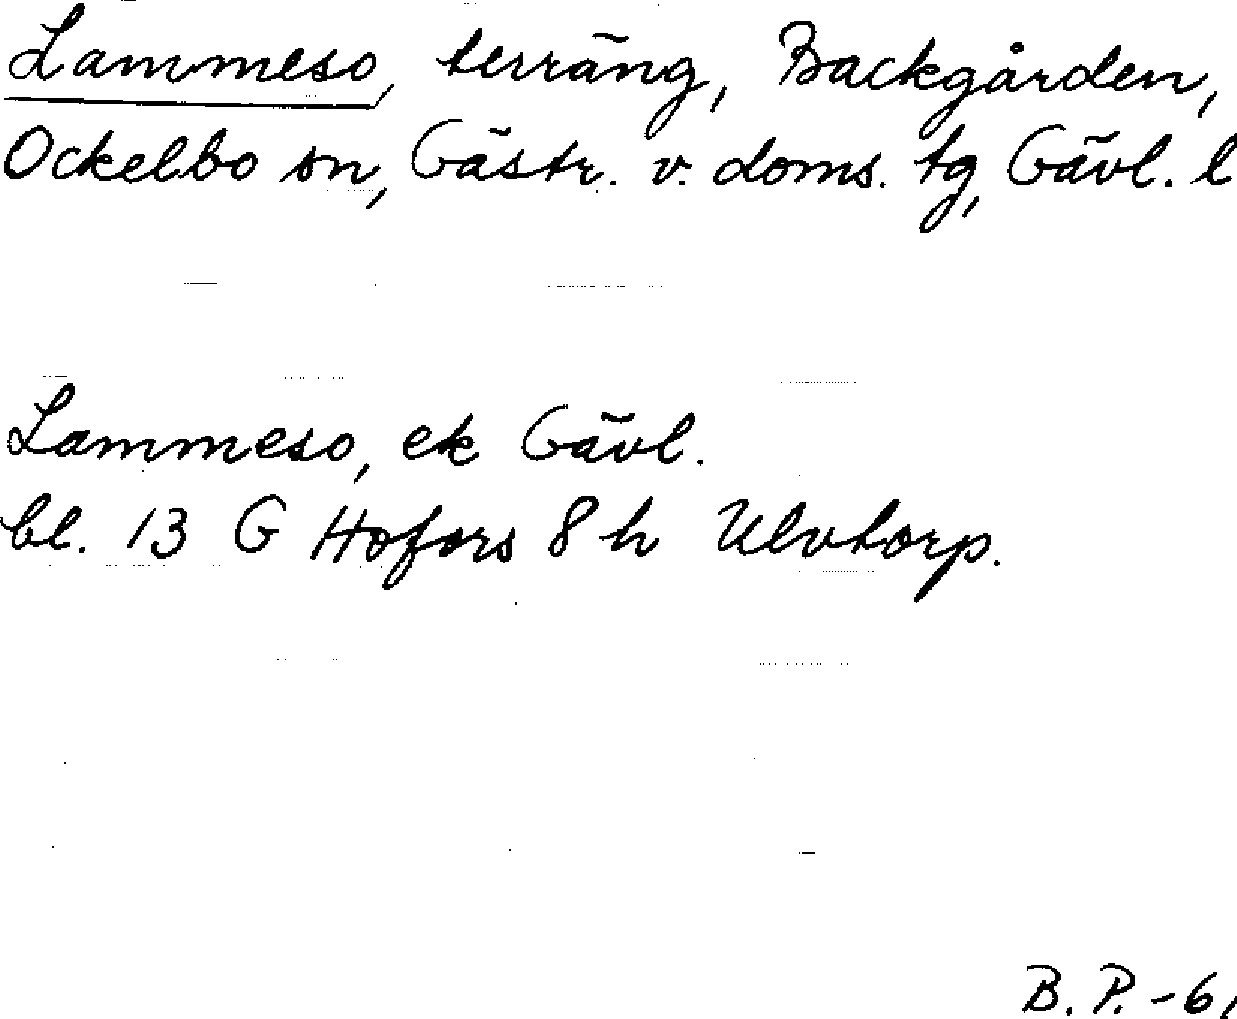 Lammeso, terräng, Backgården,
Ockelbo sn, Gästr. v. doms. tg, Gävl. l
Lammeso, ek Gävl.
bl. 13 G Hofors 8 h Ulvtorp.
B. P. -61